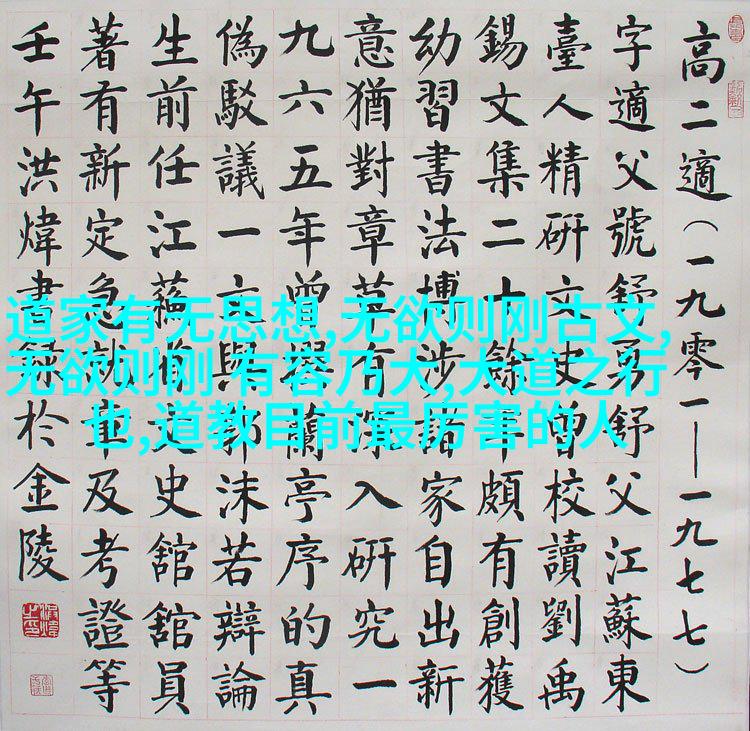 高二適（一九零一—一九七七）
字適父號舒勇舒父江蘇東
臺人精研文史曾校讀劉禹
錫文集二十餘年頗有創獲
幼習書法博涉諸家自出新
意猶對章草有深入研究一
九六五年曾撰蘭亭序的真
偽駁議一文與郭沫若辯論
生前任江蘇省文史舘舘員
著有新定急就章及考證等
壬午洪煒書録於金陵
道家有无思想,无欲则刚古文,
无欲则刚 有容乃大,大道之行
也,道教目前最厉害的人